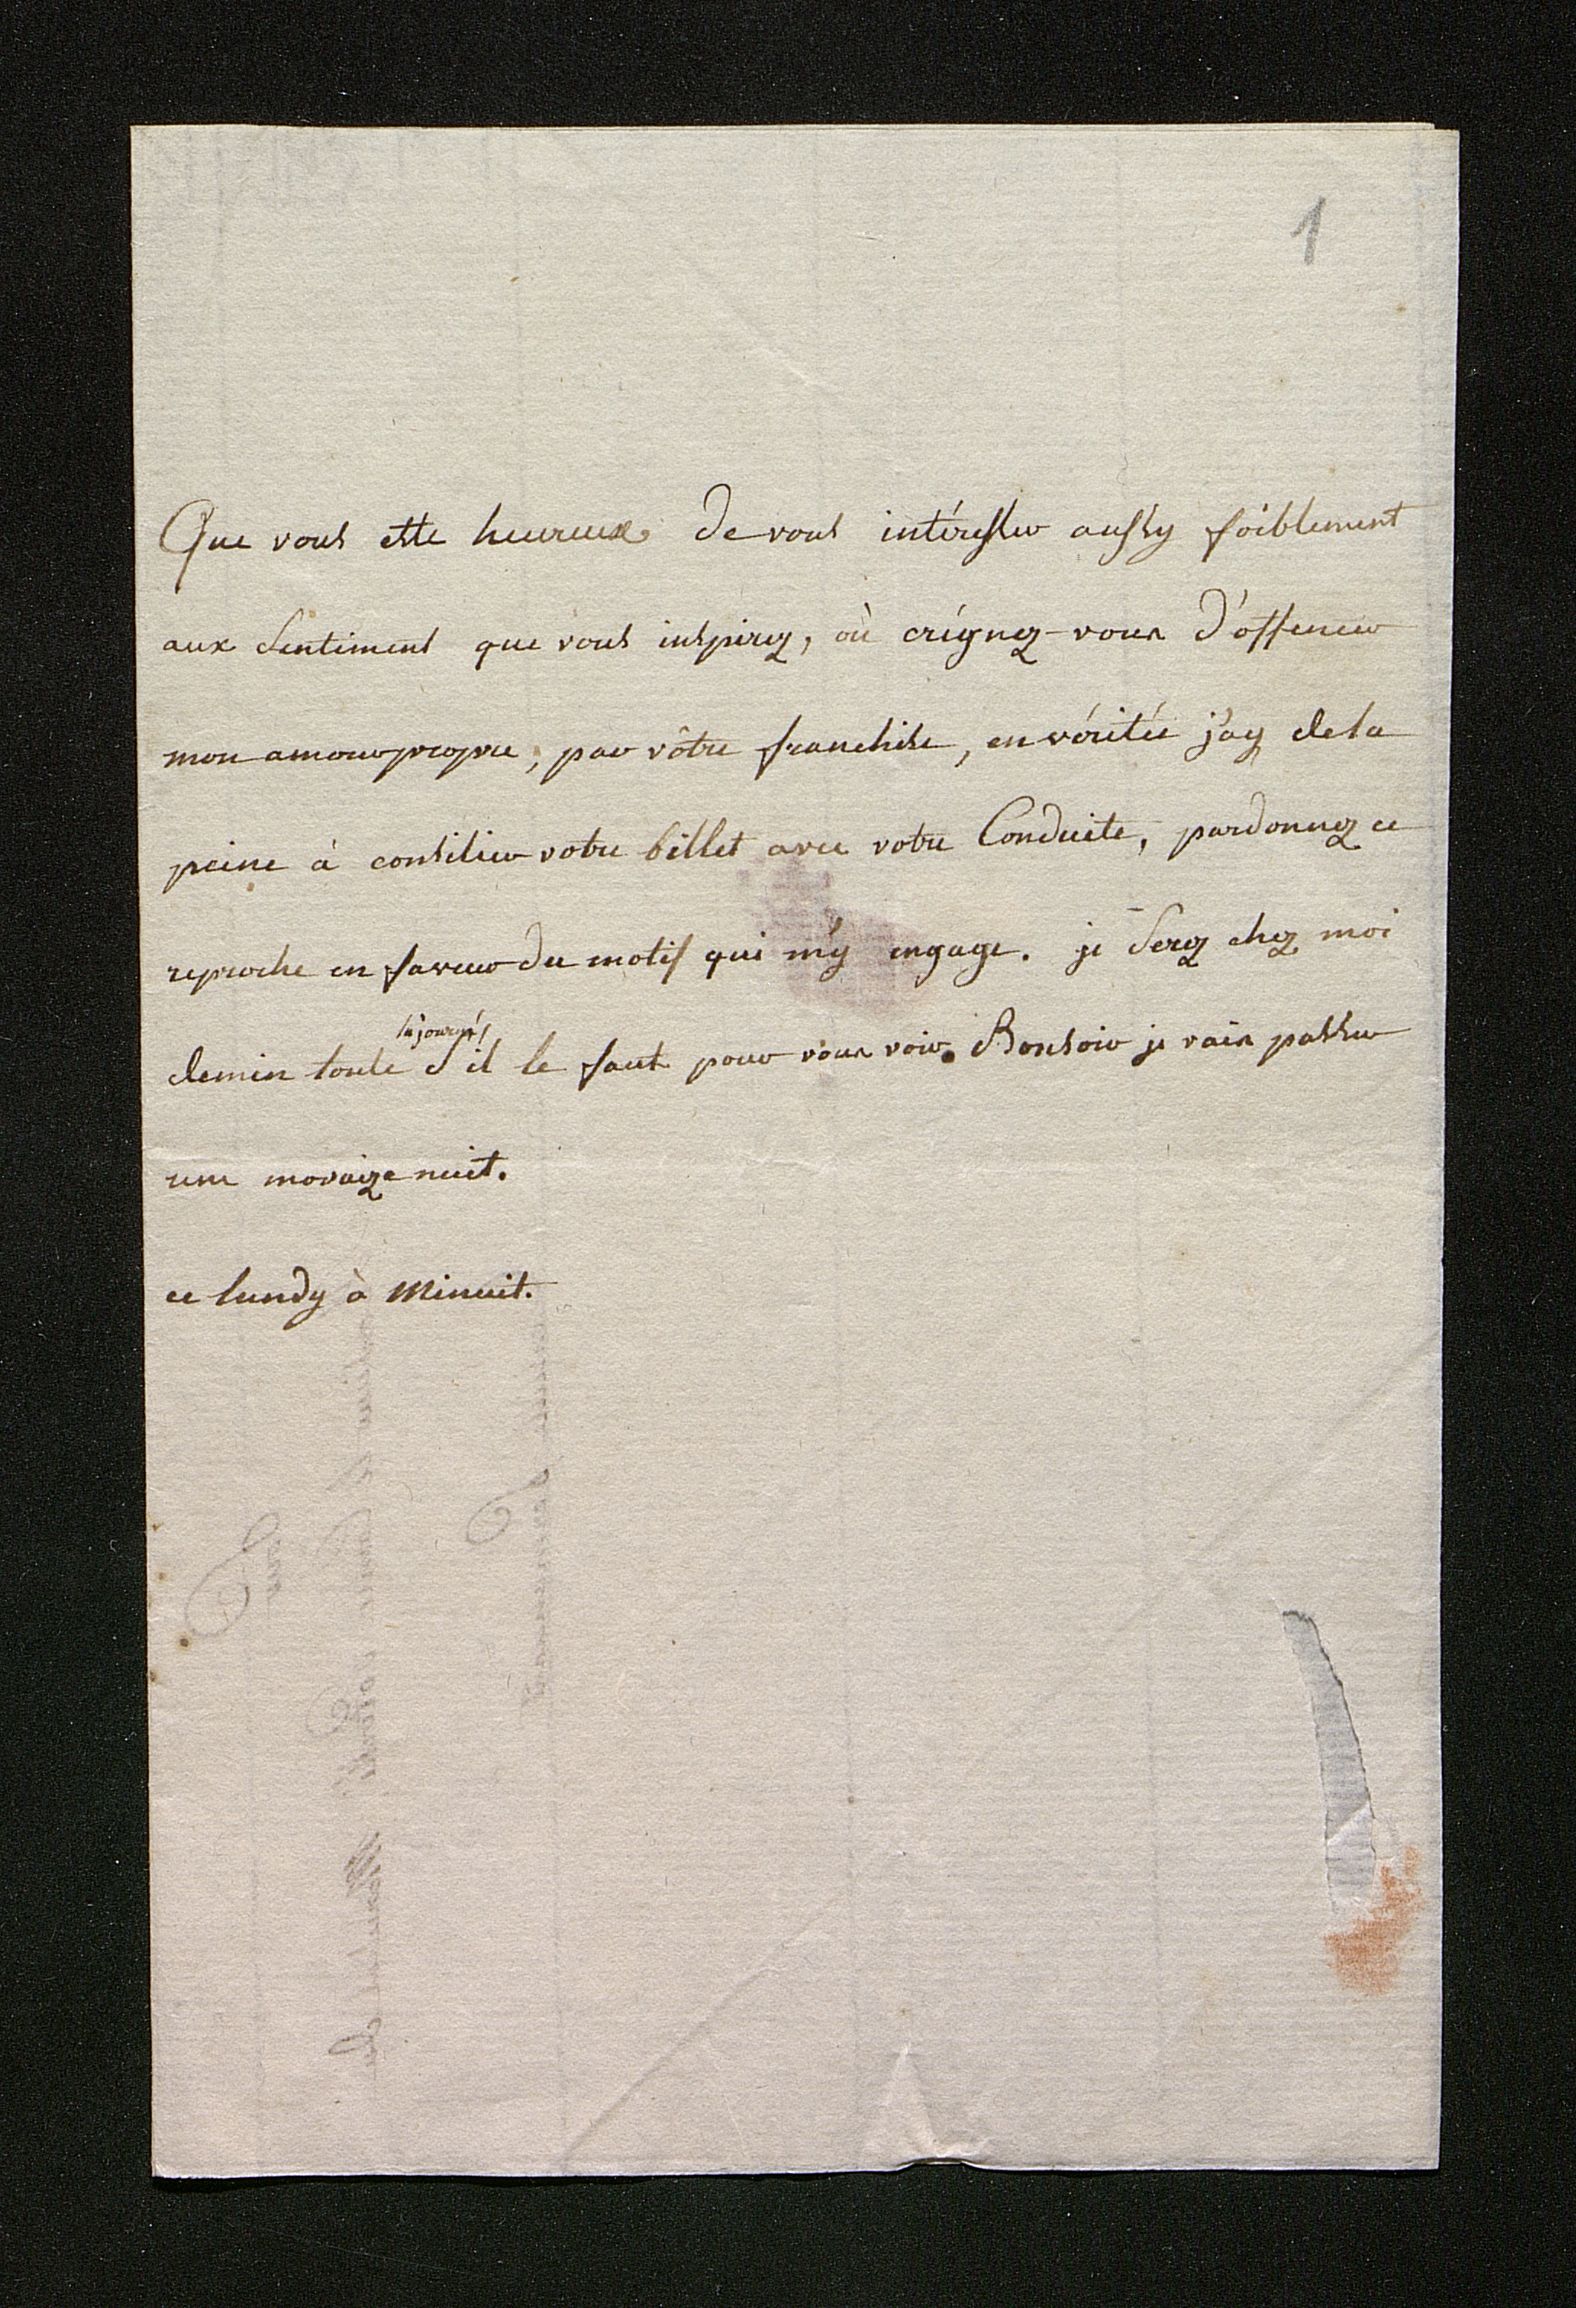 1
Que vous ette heureux de vous intéresser aussy foiblement
aux sentiment que vous inspirez, où crégnez-vous d'offencer
mon amour propre, par vôtre franchise, en véritée j'ay de la
peine à consilier votre billet avec votre Conduite, pardonnez ce
reproche en faveur du motif qui m'y engage. je serez chez moi
demin toute s'il le faut pour vous voir. Bonsoir je vais passer
une movaize nuit.
ce lundy à Minuit.